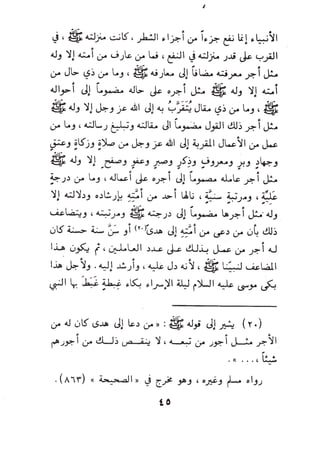 الأنبياء إنما نفع جزءاً من أجزاء الشطر ، كانت منزلته ﷺ ، في
القرب على قدر منزلته في النفع ، فما من عارف من أمته إلا وله
مثل أجر معرفته مضافاً إلى معارفه ﷺ ، وما من ذي حال من
أمته إلا وله ﷺ مثل أجره على حاله مضموماً إلى أحواله
ﷺ ، وما من ذي مقال يُتقرَّب به إلى الله عز وجل إلا وله ﷺ
مثل أجر ذلك القول مضموماً الى مقالته وتبليغ رسالته ، وما من
عمل من الأعمال المقربة إلى الله عز وجل من صلاة وزكاة وعتق
وجهاد وبر ومعروف وذكر وصبر وعفو وصفح إلا وله ﷺ
مثل أجر عامله مضموماً إلى أجره على أعماله ، وما من درجة
عَلِيَّة ، ومرتبة سَنِيَّة ، نالها أحد من أمَّتِهِ بإرشاده ودلالته إلا
وله مثل أجرها مضموماً إلى درجته ﷺ ومرتبته ، ويتضاعف
ذلك بأن من دعى من أمَّتِهِ إلى هدىً(٢٠) أو سَنَّ سنة حسنة كان
له أجر من عمل بذلك على عدد العاملين ، ثم يكون هذا
المضاعف لنبيِّنا ﷺ ، لأنه دل عليه ، وأرشد إليه . ولأجل هذا
بكى موسى عليه السلام ليلة الإسراء بكاء غبطةٍ غَبَطَ بها النبي
(٢٠) يشير إلى قوله ﷺ : « من دعا إلى هدى كان له من
الأجر مثل أجور من تبعه ، لا ينقص ذلك من أجورهم
شيئاً ، . . . » .
رواه مسلم وغيره ، وهو مخرج في « الصحيحة » (٨٦٣) .
٤٥